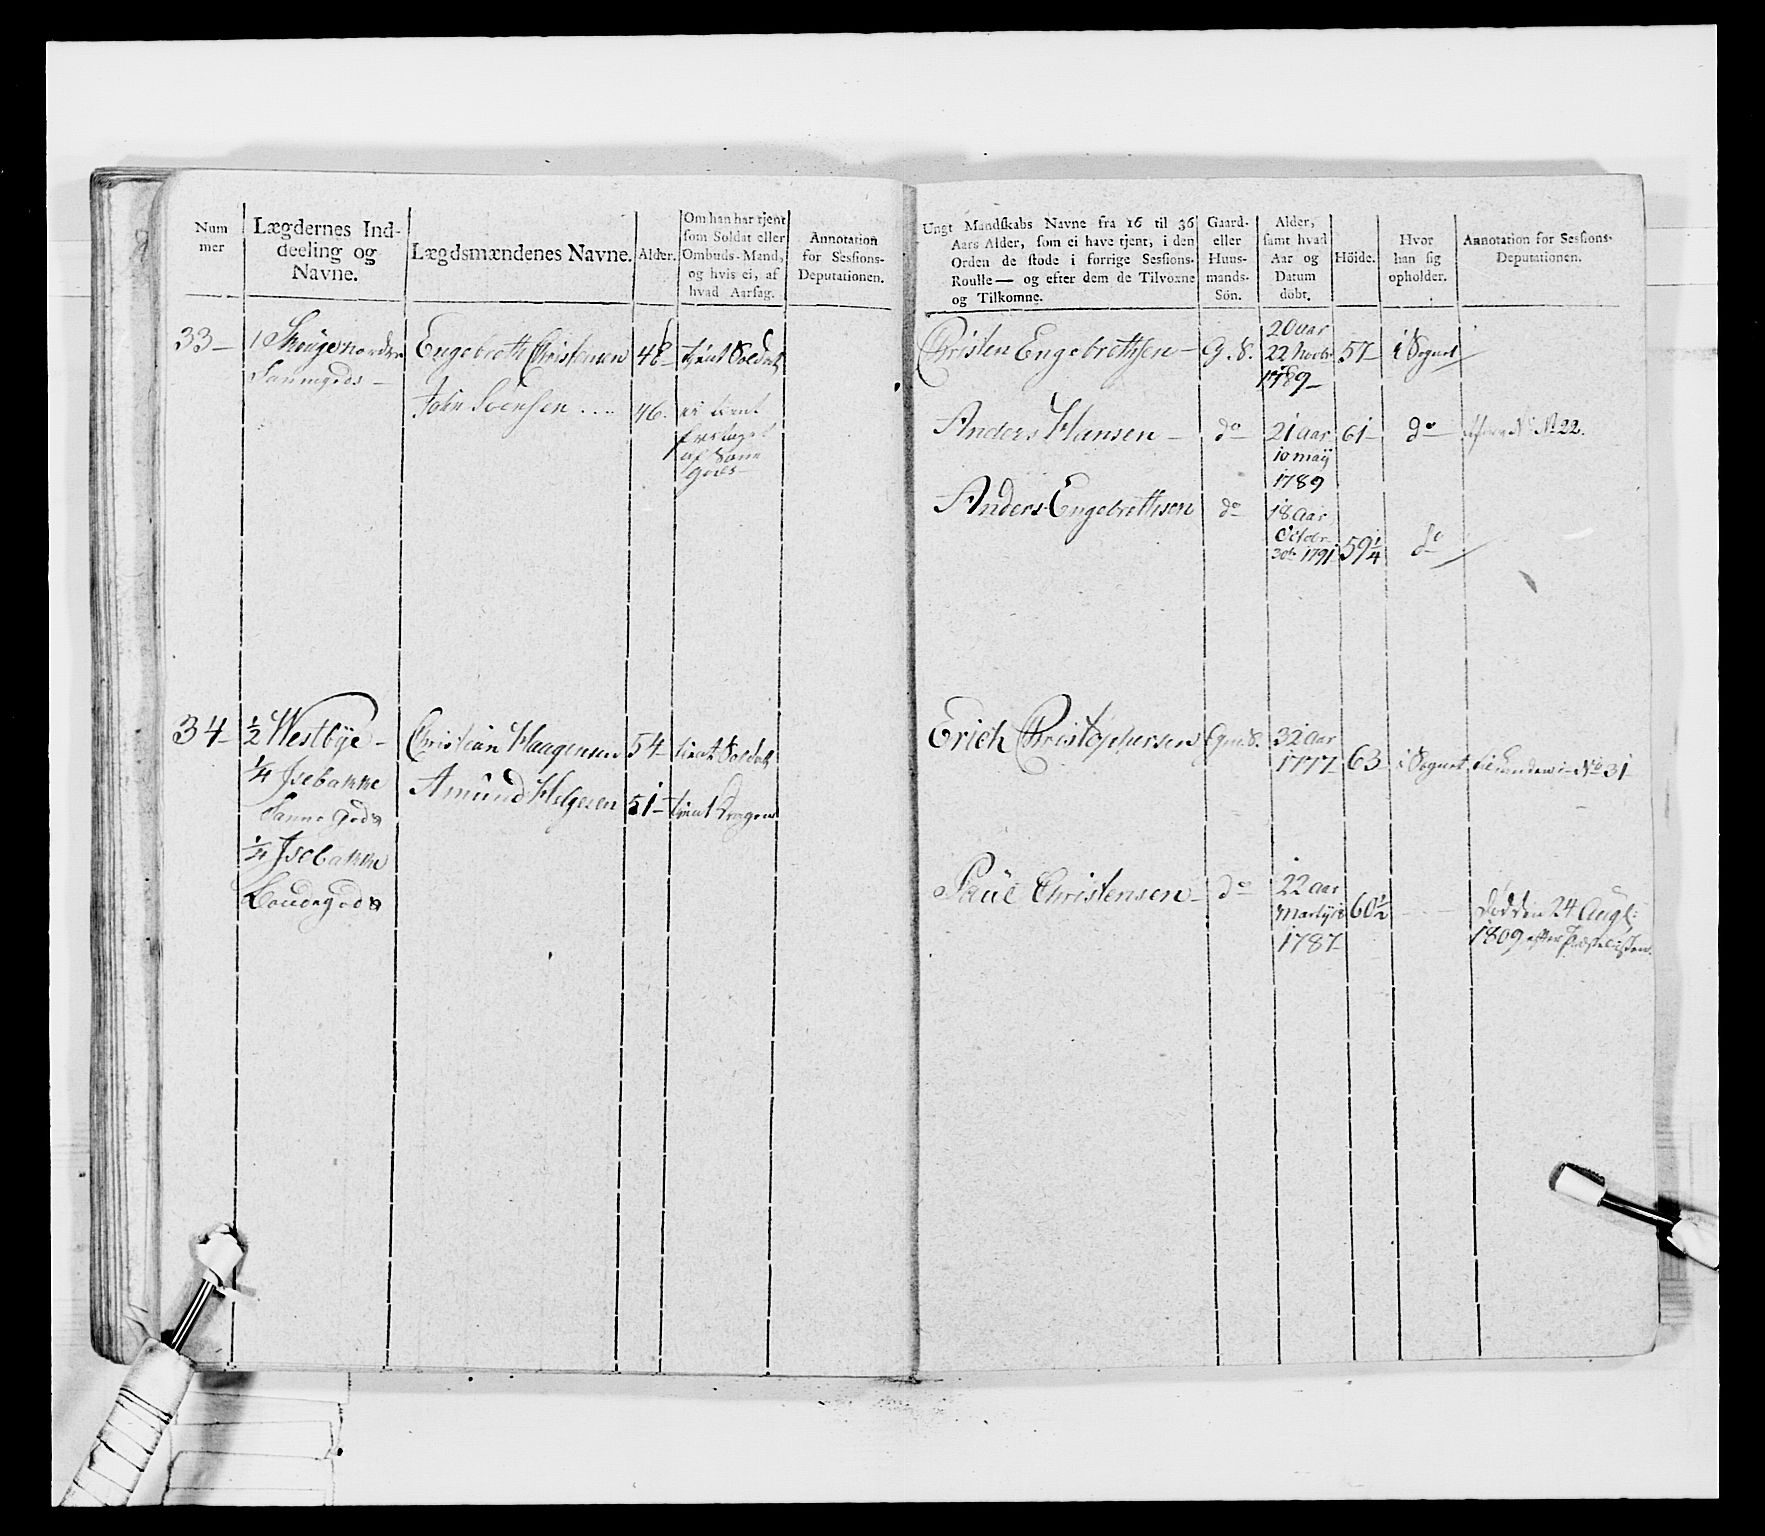 Num
mer
Lægdernes Ind-
deeling og
Navne.
Lægdsmændenes Navne.
Alder.
Om han har tjent
som Soldat eller
Ombuds-Mand,
og hvis ei, af
hvad Aarsag.
Annotation
for Sessions-
Deputationen.
Ungt Mandskabs Navne fra 16 til 36
Aars Alder, som ei have tjent, i den
Orden de stode i forrige Sessions-
Roulle — og efter dem de Tilvoxne
og Tilkomne.
Gaard-
eller
Huus-
mands-
Sön.
Alder,
samt hvad
Aar og
Datum
döbt.
Höide.
Hvor
han sig
opholder.
Annotation for Sessions-
Deputationen.
33 1 norder Engebreth Christensen 48 tient Soldat
Sanne gods
John Svensen 46. ei tient
af Sanne
gods
Christen Engebrethsen G. S. 20 aar 57 i Sognet
22 Novbr
1789
Anders Hansen do 21 aar 61 do No 22.
10 maij
1789
Anders Engebrethsen do 18 aar
Octobr
30te 1791 59 1/4 do
34 1/2 Westbÿe Christian Haagensen 54 tient Soldat
1/4 Isebakke Amund Helgesen 51 tient Dragon
Sanne Gods
1/4 Isebakke
gods
Erich Christophersen Gm. S. 32 aar
1777 63 i Sognet No 31
Paul Christensen do 22 aar 60 1/2
1787
Död den 24 Augt:
1809 efter